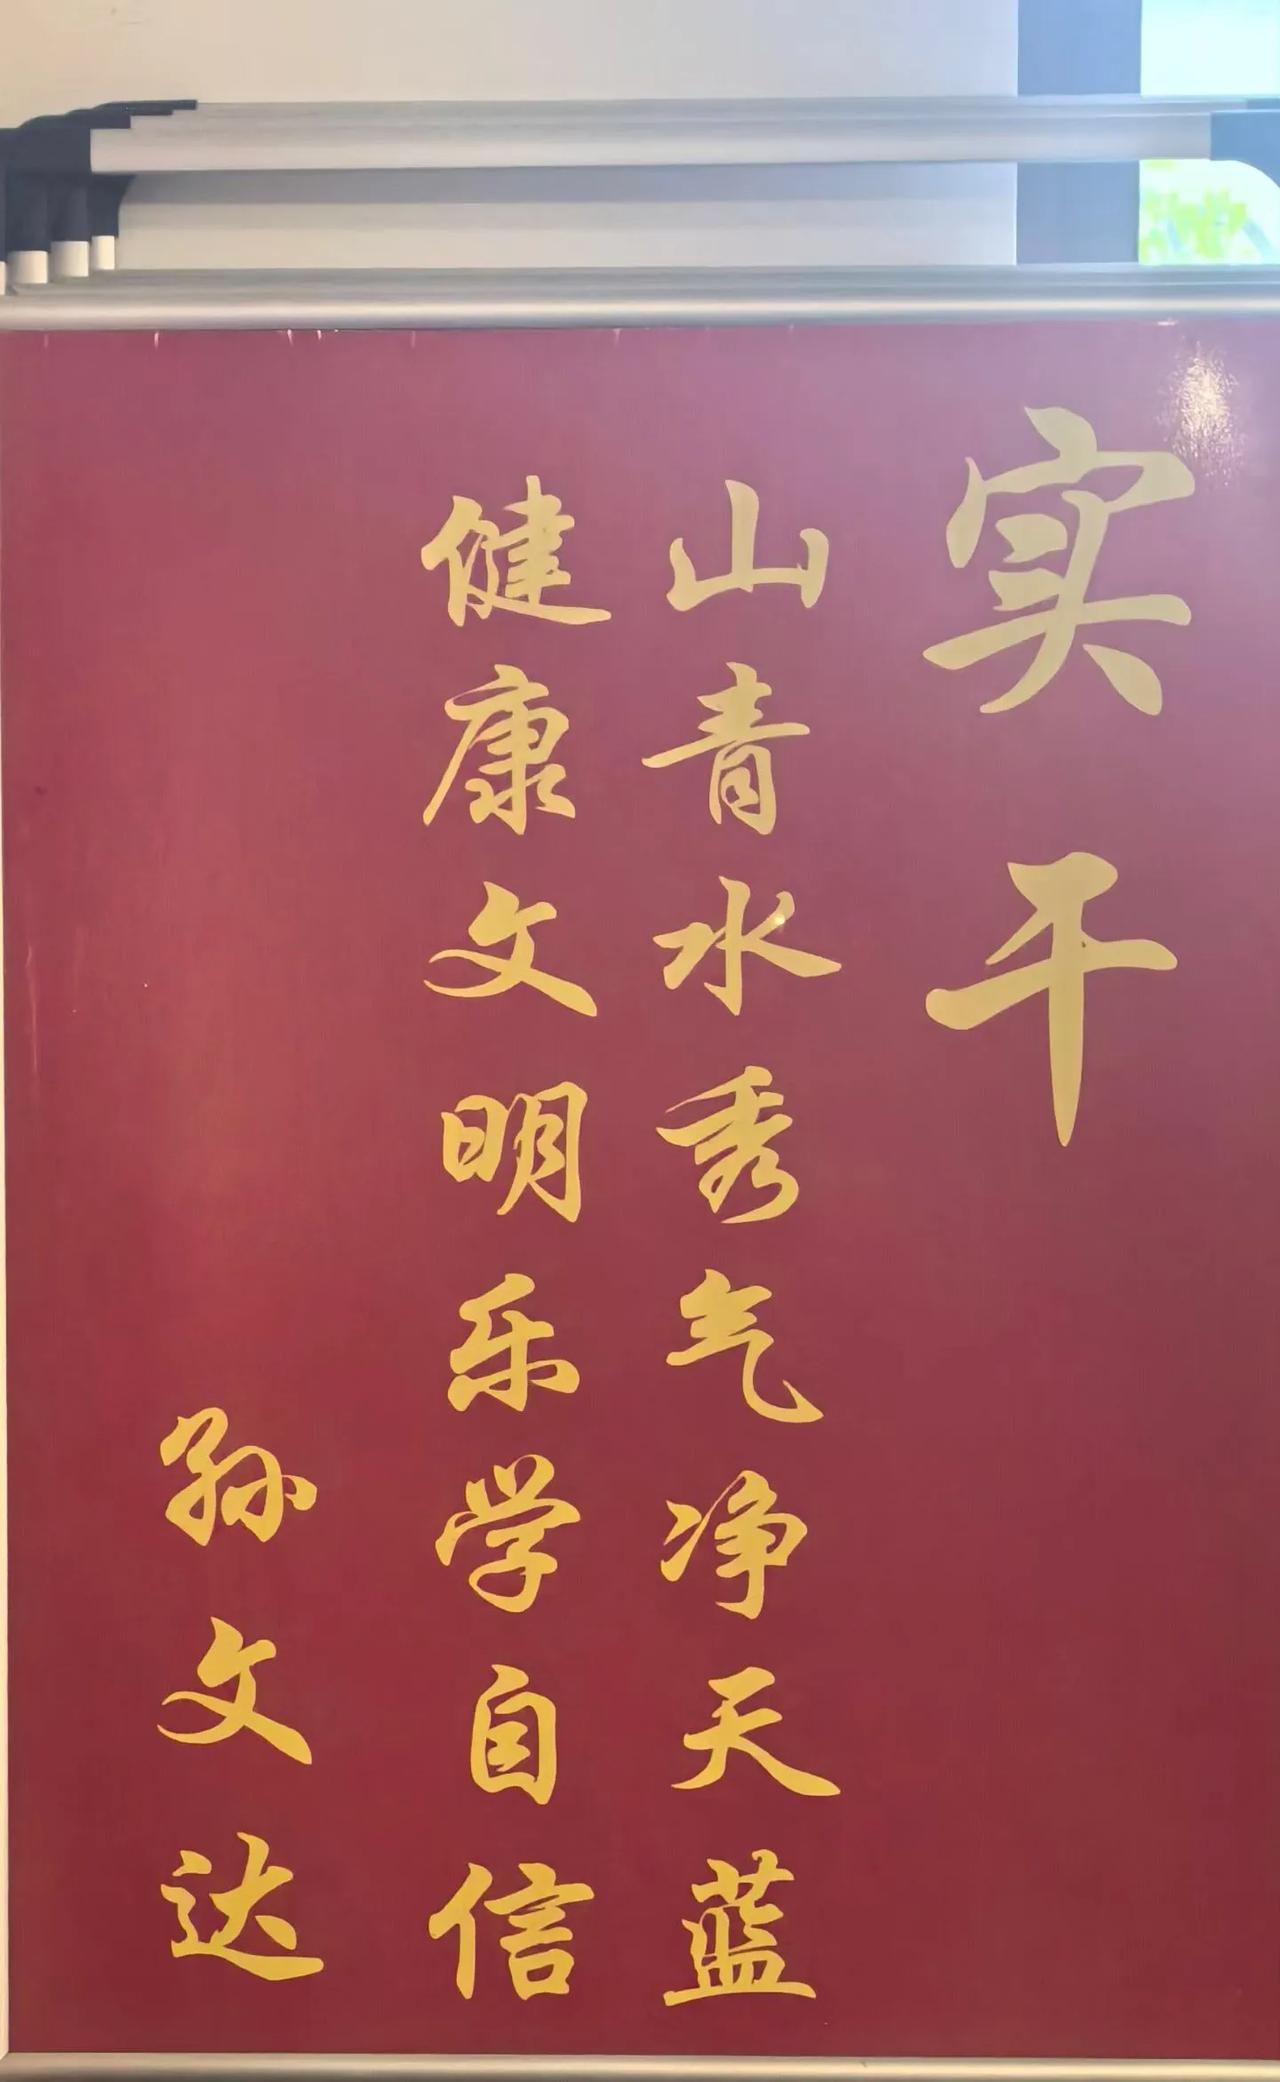 实干
山青水秀气净天蓝
健康文明乐学自信
孙文达